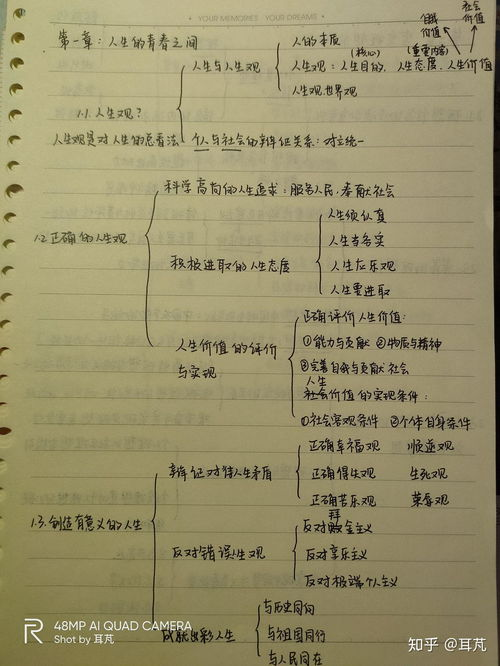 YOUR MEMORIES YOUR DREAMS
社会
价值
自我
价值
第一章：人生的青春之问
人的本质
(核心) (重要内容)
人生与人生观
人生观：人生目的、人生态度、人生价值
人生观世界观
1.1. 人生观？
人生观是对人生的总看法
个人与社会的辩证关系：对立统一
科学高尚的人生追求：服务人民，奉献社会
1.2 正确的人生观
积极进取的人生态度
人生须认真
人生当务实
人生应乐观
人生要进取
人生价值的评价
与实现
正确评价人生价值：
①能力与贡献 ②物质与精神
③完善自我与贡献社会
人生
社会价值的实现条件：
①社会客观条件 ②个体自身条件
辩证对待人生矛盾
正确幸福观 顺逆观
正确得失观 生死观
正确苦乐观 荣辱观
1.3. 创造有意义的人生
反对错误人生观
拜
反对金主义
反对享乐主义
反对极端个人主义
成就出彩人生
与历史同向
与祖国同行
与人民同在
R
48MP AI QUAD CAMERA
Shot by 耳芃
知乎 @耳芃